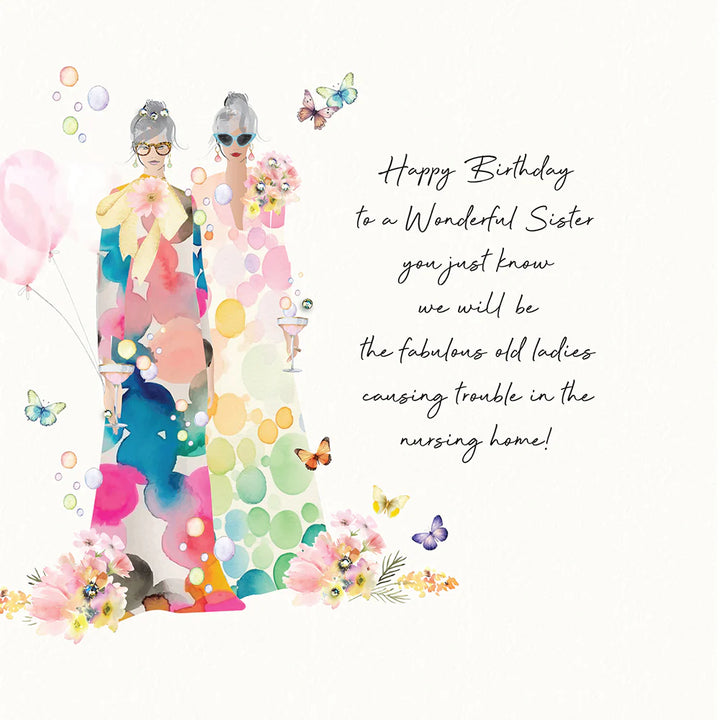 Happy Birthday
to a Wonderful Sister
you just know
we will be
the fabulous old ladies
causing trouble in the
nursing home!